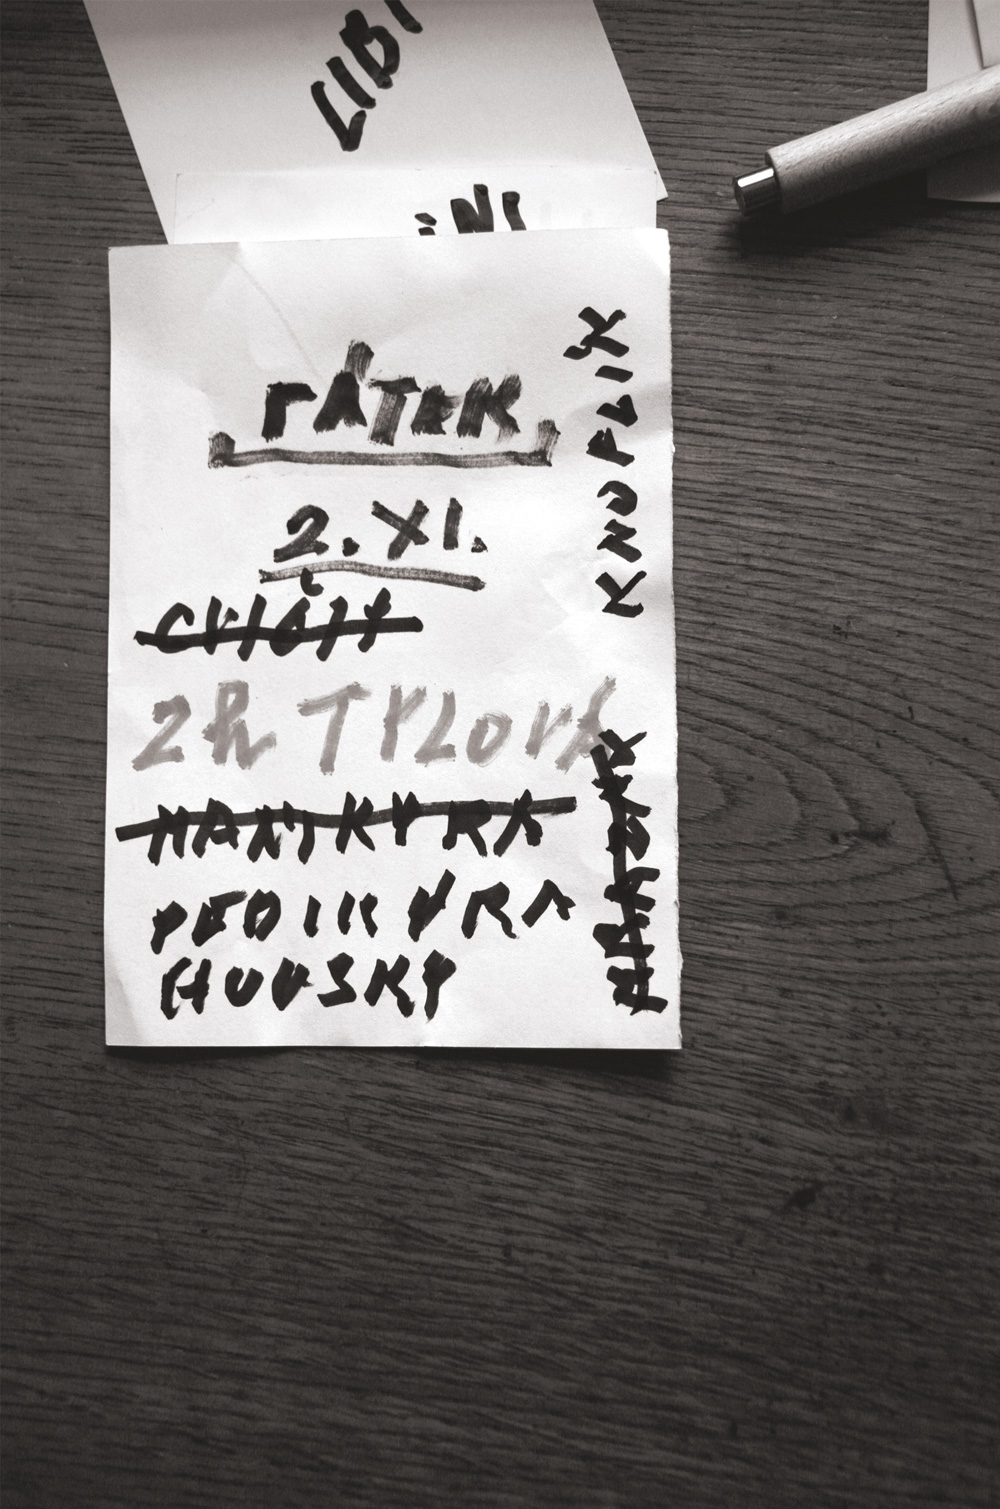 LIBI
PÁTEK
2. XI.
CVIČIT
2h TYLOVÁ
MANIKYRA
PEDIKYRA
HOUSKY
KNOFLÍK